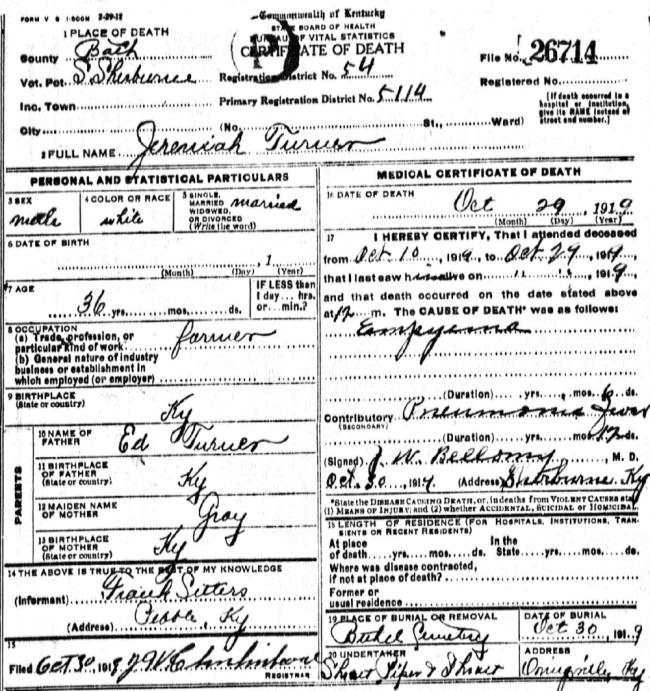 FORM V S 1-500M 2-29-12
Commonwealth of Kentucky
STATE BOARD OF HEALTH
BUREAU OF VITAL STATISTICS
CERTIFICATE OF DEATH
1 PLACE OF DEATH
County Bath
Vot. Pct. S. Sherburne
Inc. Town
City (No. St., Ward)
Registration District No. 54
Primary Registration District No. 5114
File No. 26714
Registered No.
[If death occurred in a hospital or institution, give its NAME instead of street and number.]
2 FULL NAME Jeremiah Turner
PERSONAL AND STATISTICAL PARTICULARS
3 SEX male
4 COLOR OR RACE white
5 SINGLE, MARRIED, WIDOWED, OR DIVORCED (Write the word) married
6 DATE OF BIRTH
, 1
(Month) (Day) (Year)
7 AGE
36 yrs. mos. ds.
IF LESS than 1 day... hrs. or... min.?
8 OCCUPATION
(a) Trade, profession, or particular kind of work farmer
(b) General nature of industry
business or establishment in
which employed (or employer)
9 BIRTHPLACE
(State or country) Ky
PARENTS
10 NAME OF FATHER Ed Turner
11 BIRTHPLACE OF FATHER
(State or country) Ky
12 MAIDEN NAME OF MOTHER Gray
13 BIRTHPLACE OF MOTHER
(State or country) Ky
14 THE ABOVE IS TRUE TO THE BEST OF MY KNOWLEDGE
(Informant) Frank Sitters
(Address) Pebble, Ky
15
Filed Oct 30, 1919
REGISTRAR
MEDICAL CERTIFICATE OF DEATH
16 DATE OF DEATH
Oct 29, 1919
(Month) (Day) (Year)
17 I HEREBY CERTIFY, That I attended deceased
from Oct 10, 1919, to Oct 29 1919
that I last saw him alive on " ", 1919
and that death occurred on the date stated above
at 12 m. The CAUSE OF DEATH* was as follows:
Empyema
(Duration) yrs. mos. 6 ds.
Contributory Pneumonia
(SECONDARY)
(Duration) yrs. mos. 12 ds.
(Signed) J. W. Bellomy, M. D.
Oct. 30, 1919 (Address) Sherburne Ky
*State the DISEASE CAUSING DEATH, or, in deaths from VIOLENT CAUSES state
(1) MEANS OF INJURY; and (2) whether ACCIDENTAL, SUICIDAL or HOMICIDAL.
18 LENGTH OF RESIDENCE (FOR HOSPITALS, INSTITUTIONS, TRANSIENTS OR RECENT RESIDENTS)
At place of death yrs. mos. ds. In the State yrs. mos. ds.
Where was disease contracted,
if not at place of death?
Former or
usual residence
19 PLACE OF BURIAL OR REMOVAL
Bethel Cemetery
DATE OF BURIAL
Oct 30, 1919
20 UNDERTAKER
Piper &
ADDRESS
Owingsville, Ky